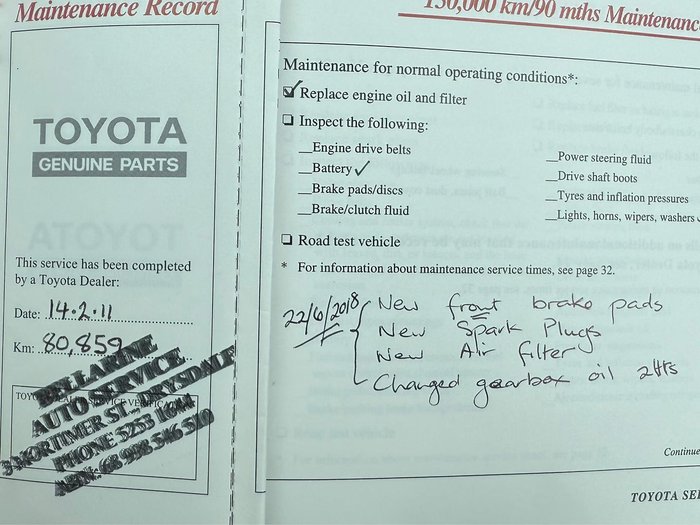 Maintenance Record
TOYOTA
GENUINE PARTS
This service has been completed
by a Toyota Dealer:
Date: 14.2.11
Km: 80,859
BELLARINE
AUTO SERVICE
3 MORTIMER ST., DRYSDALE
PHONE 5253 1644
ABN: 68 998 546 510
150,000 km/90 mths Maintenance
Maintenance for normal operating conditions*:
Replace engine oil and filter
Inspect the following:
Engine drive belts
Battery ✓
Brake pads/discs
Brake/clutch fluid
Power steering fluid
Drive shaft boots
Tyres and inflation pressures
Lights, horns, wipers, washers
Road test vehicle
* For information about maintenance service times, see page 32.
22/6/2018
New front brake pads
New Spark Plugs
New Air filter
Changed gearbox oil 2lts
Continue
TOYOTA SE